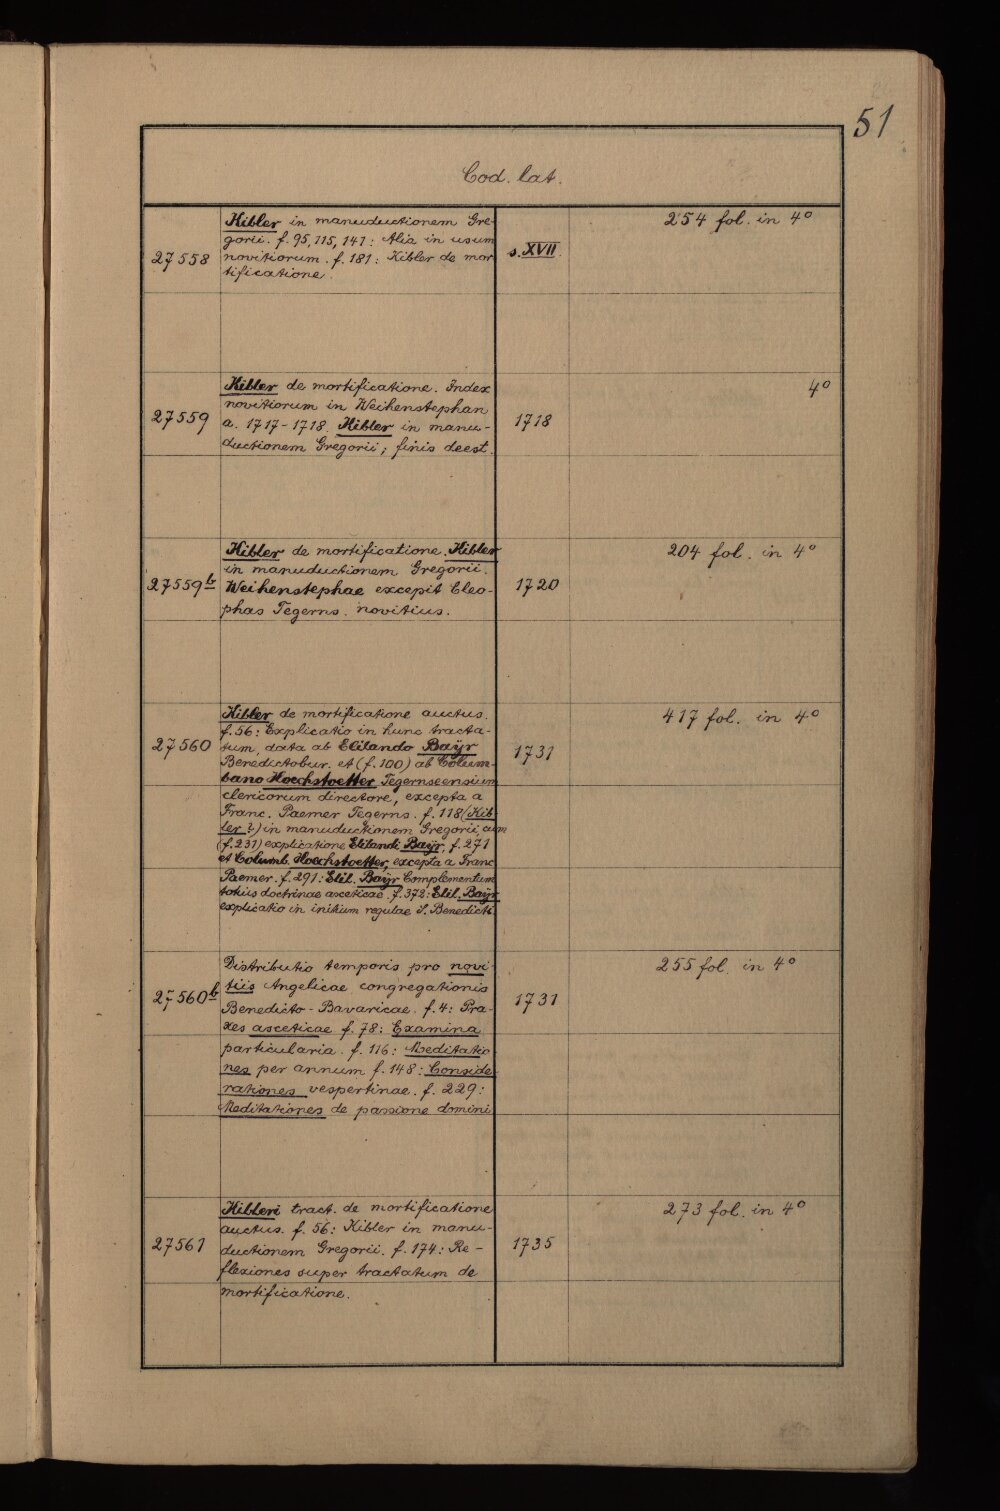 51
Cod. lat.
27558
Kibler in manuductionem Gre-
gorii. f. 95, 115, 141: Alia in usum
novitiorum. f. 181: Kibler de mor
tificatione.
s. XVII.
254 fol. in 4°
27559
Kibler de mortificatione. Index
novitiorum in Weihenstephan
a. 1717-1718. Kibler in manu-
ductionem Gregorii; finis deest.
1718
4°
27559b
Kibler de mortificatione. Kibler
in manuductionem Gregorii.
Weihenstephae excepit Cleo-
phas Tegerns. novitius.
1720
204 fol. in 4°
27560
Kibler de mortificatione auctus.
f. 56: Explicatio in hunc tracta-
tum, data ab Elilando Baÿr
Benedictobur. et (f. 100) ab Colum-
bano Hoechstoetter Tegernseensium
clericorum directore, excepta a
Franc. Paemer Tegerns. f. 118 (Kib-
ler?) in manuductionem Gregorii, cum
(f. 231) explicatione Elilandi Baÿr, f. 271
et Columb. Hoechstoetter, excepta a Franc
Paemer. f. 291: Elil. Baÿr Complementum
totius doctrinae asceticae. f. 372: Elil. Baÿr
explicatio in initium regulae S. Benedicti.
1731
417 fol. in 4°
27560b
Distributio temporis pro novi-
tiis Angelicae congregationis
Benedicto-Bavaricae. f. 4: Pra-
xes asceticae f. 78: Examina
particularia. f. 116: Meditatio-
nes per annum f. 148: Conside-
rationes vespertinae. f. 229:
Meditationes de passione domini
1731
255 fol. in 4°
27561
Kibleri tract. de mortificatione
auctus. f. 56: Kibler in manu-
ductionem Gregorii. f. 174: Re-
flexiones super tractatum de
mortificatione.
1735
273 fol. in 4°